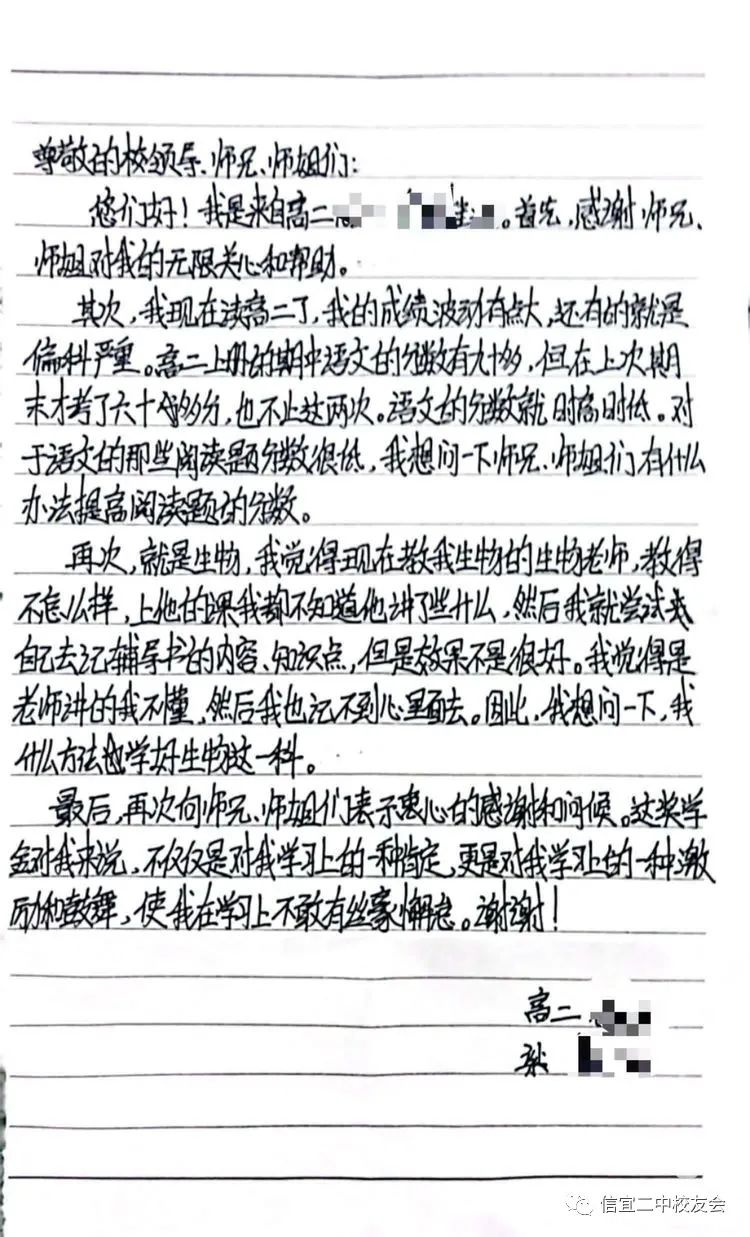 尊敬的校领导、师兄、师姐们:
您们好!我是来自高二。首先,感谢师兄、
师姐对我的无限关心和帮助。
其次,我现在读高二了,我的成绩波动有点大,还有的就是
偏科严重。高二上册的期中语文的分数有九十多,但在上次期
末才考了六十多分,也不止这两次。语文的分数就时高时低。对
于语文的那些阅读题分数很低,我想问一下师兄、师姐们有什么
办法提高阅读题的分数。
再次,就是生物,我觉得现在教我生物的生物老师,教得
不怎么样,上他的课我都不知道他讲了些什么,然后我就尝试
自己去记辅导书的内容、知识点,但是效果不是很好。我觉得是
老师讲的我不懂,然后我也记不到心里面去。因此,我想问一下,我
什么方法学好生物这一科。
最后,再次向师兄、师姐们表示衷心的感谢和问候。这奖学
金对我来说,不仅仅是对我学习上的一种肯定,更是对我学习上的一种激
励和鼓舞,使我在学习上不敢有丝豪懈怠。谢谢!
高二
信宜二中校友会